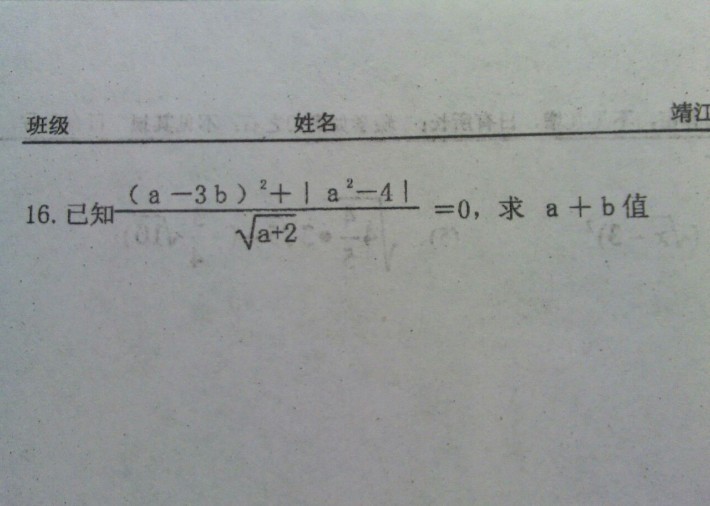 班级 姓名 靖江
16. 已知 (a-3b)²+|a²-4| / √(a+2) =0, 求 a+b值